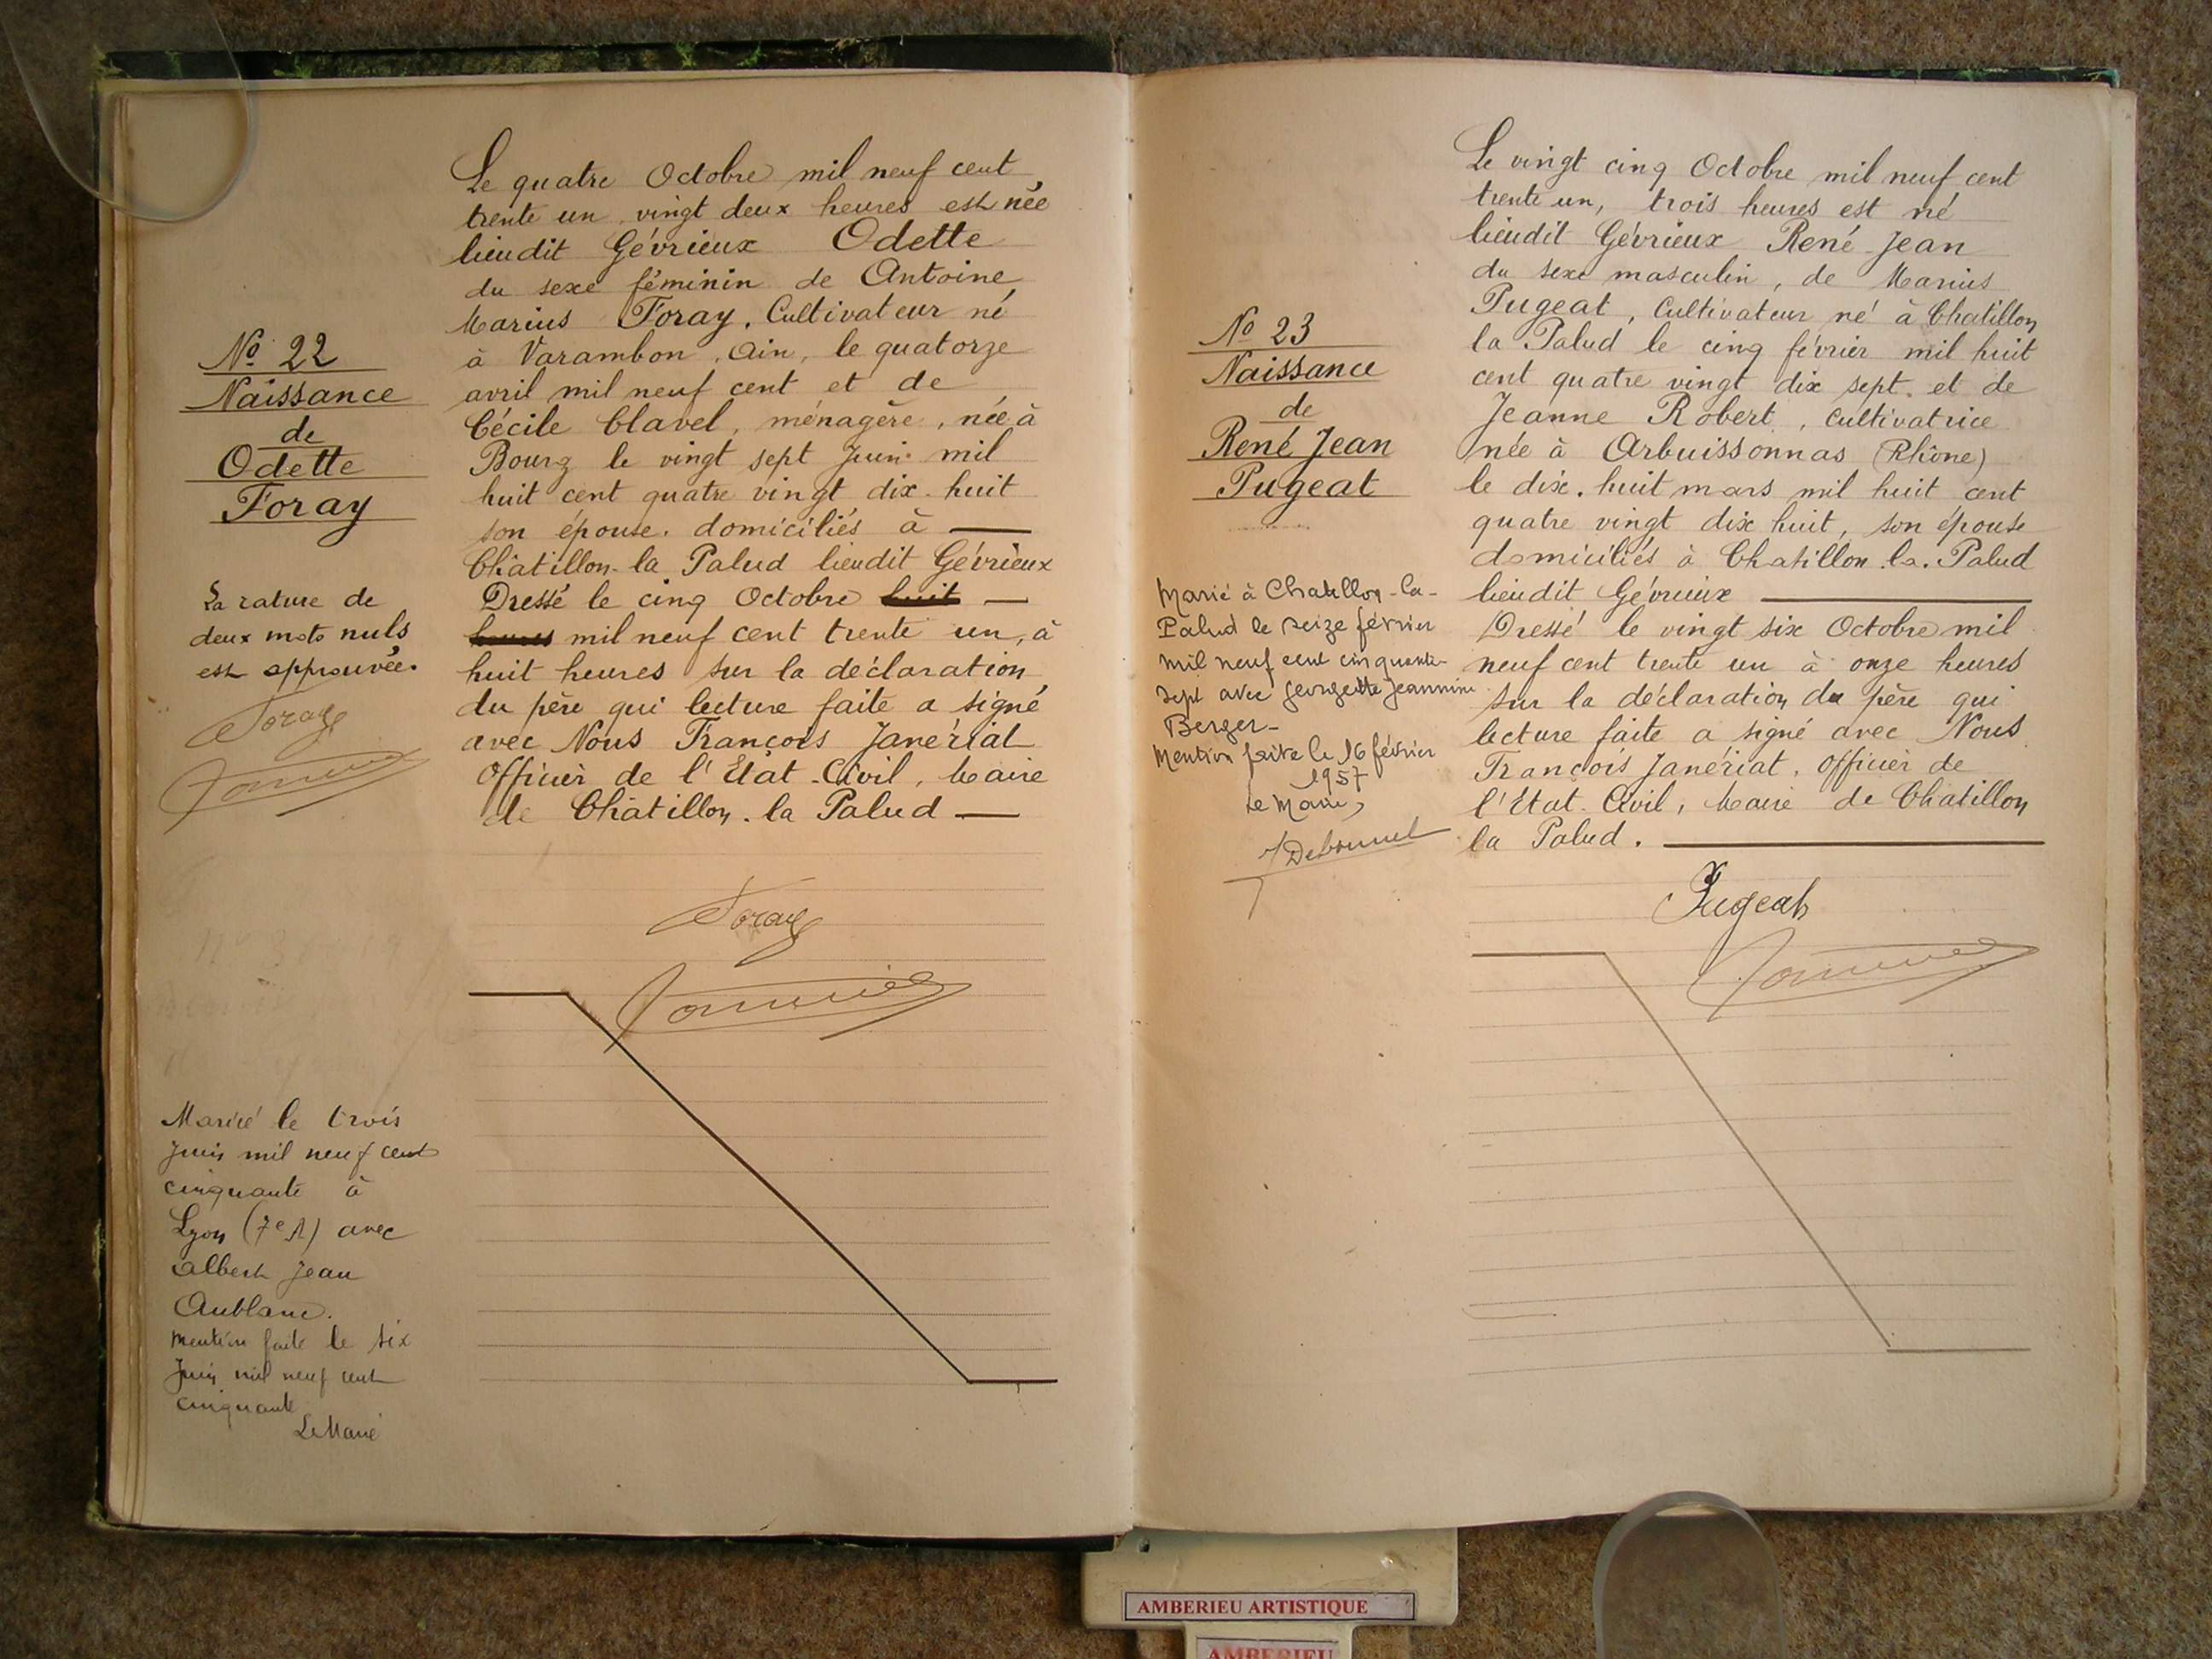 Le quatre Octobre mil neuf cent
trente un vingt deux heures est née
lieudit Gévrieux Odette
du sexe féminin de Antoine
Marius Foray, Cultivateur né
à Varambon, Ain, le quatorze
avril mil neuf cent et de
Cécile Clavel, ménagère, née à
Bourg le vingt sept Juin mil
huit cent quatre vingt dix-huit
son épouse. domiciliés à
Châtillon-la Palud lieudit Gévrieux
Dressé le cinq Octobre huit
heures mil neuf cent trente un, à
huit heures sur la déclaration
du père qui lecture faite a signé
avec Nous François Janériat
Officier de l'Etat-Civil, Maire
de Châtillon-la Palud
Foray
N° 22
Naissance
de
Odette
Foray
La rature de
deux mots nuls
est approuvée.
Foray
Marié le trois
Juin mil neuf cent
cinquante à
Lyon (7e A) avec
Albert Jean
Aublanc.
Mention faite le six
Juin mil neuf cent
cinquante
Le Maire
Le vingt cinq Octobre mil neuf cent
trente un, trois heures est né
lieudit Gévrieux René Jean
du sexe masculin, de Marius
Pugeat, Cultivateur né à Chatillon
la Palud le cinq février mil huit
cent quatre vingt dix sept. et de
Jeanne Robert, Cultivatrice
née à Arbuissonnas (Rhône)
le dix-huit mars mil huit cent
quatre vingt dix huit, son épouse
domiciliés à Chatillon-la-Palud
lieudit Gévrieux
Dressé le vingt six Octobre mil
neuf cent trente un à onze heures
sur la déclaration du père qui
lecture faite a signé avec Nous
François Janériat, Officier de
l'Etat-Civil, Maire de Chatillon
la Palud.
Pugeat
N° 23
Naissance
de
René Jean
Pugeat
Marié à Chatillon-la-
Palud le seize février
mil neuf cent cinquante-
sept avec Georgette Jeannine
Berger-
Mention faite le 16 février
1957
Le Maire,
AMBERIEU ARTISTIQUE
AMBERIEU